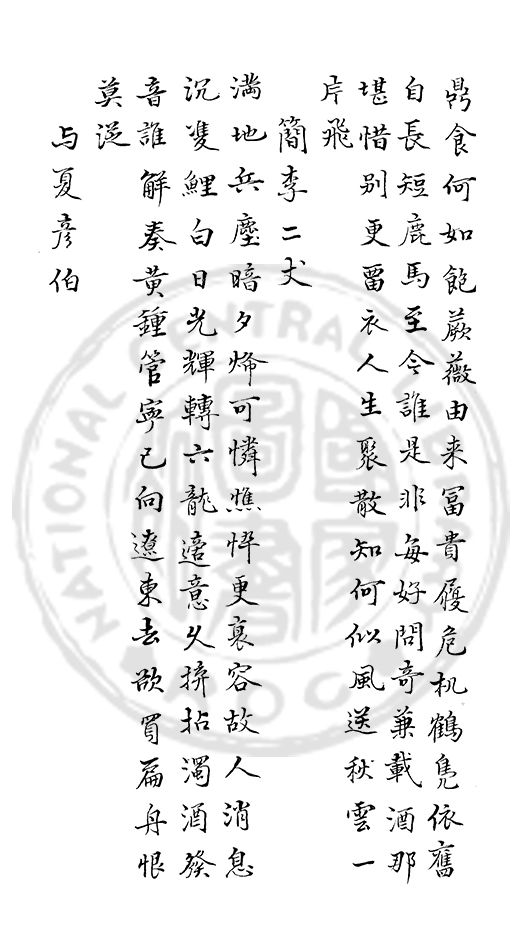 鼎食何如飽蕨薇由来冨貴履危机鶴鳬依舊
自長短鹿馬至今誰是非每好問奇兼載酒那
堪惜别更畱衣人生聚散知何似風送秋雲一
片飛
簡李二丈
满地兵塵暗夕烽可憐憔悴更衰容故人消息
沉雙鯉白日光輝轉六龍適意久拚拈濁酒發
音誰解奏黄鍾管寧已向遼東去欲買扁舟恨
莫從
与夏彦伯
NATIONAL CENTRAL